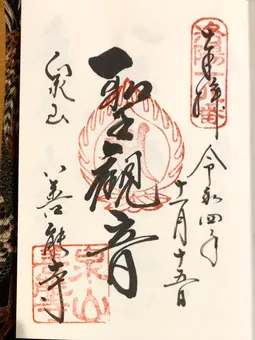 洛陽十八番
奉拝
令和四年
十一月十五日
聖観音
泉山
善能寺